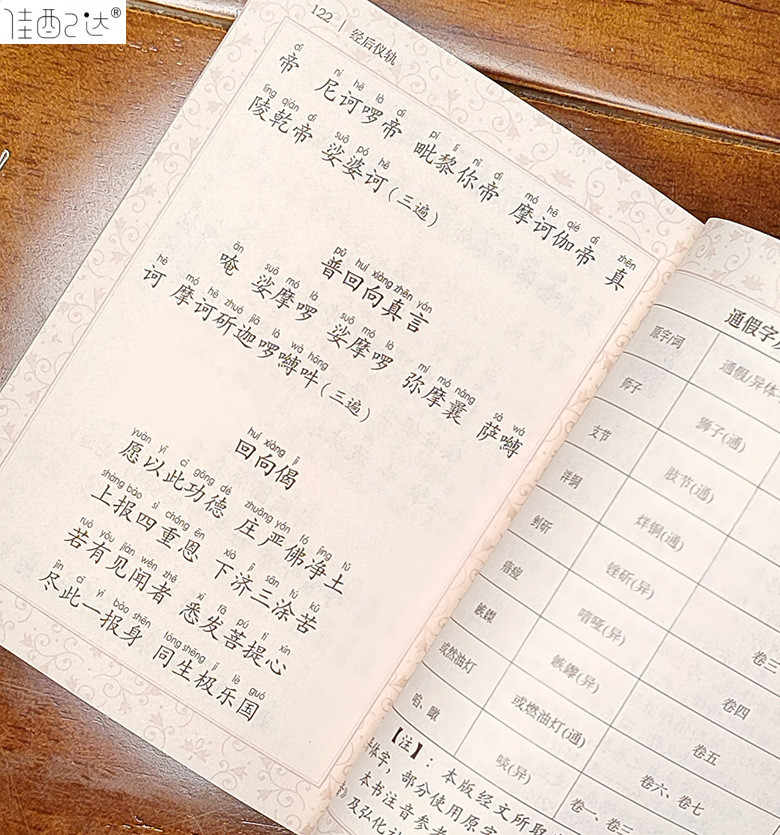 佳酉己达®
122 经后仪轨
dì ní hē là dì pí lí nǐ dì mó hē qié dì zhēn
帝 尼诃啰帝 毗黎你帝 摩诃伽帝 真
líng qián dì suō pó hē
陵乾帝 娑婆诃(三遍)
pǔ huí xiàng zhēn yán
普回向真言
ǎn suō mó là suō mó là mí mó nǎng sà wā
唵 娑摩啰 娑摩啰 弥摩曩 萨嚩
hē mó hē zhuó jiā là wā hōng
诃 摩诃斫迦啰嚩吽(三遍)
huí xiàng jì
回向偈
yuàn yǐ cǐ gōng dé zhuāng yán fó jìng tǔ
愿以此功德 庄严佛净土
shàng bào sì chóng ēn xià jì sān tú kǔ
上报四重恩 下济三涂苦
ruò yǒu jiàn wén zhě xī fā pú tí xīn
若有见闻者 悉发菩提心
jìn cǐ yí bào shēn tóng shēng jí lè guó
尽此一报身 同生极乐国
通假字
原字/词 通假/异体
师子 狮子(通)
支节 肢节(通)
洋铜 烊铜(通)
(异)
喑哑(异)
(异) 卷三
或然油灯 或燃油灯(通) 卷四
啖(异) 卷五
卷六、卷七
卷一、卷二
【注】:本版经文所取
体字,部分使用原字
本书注音参考
及弘化社